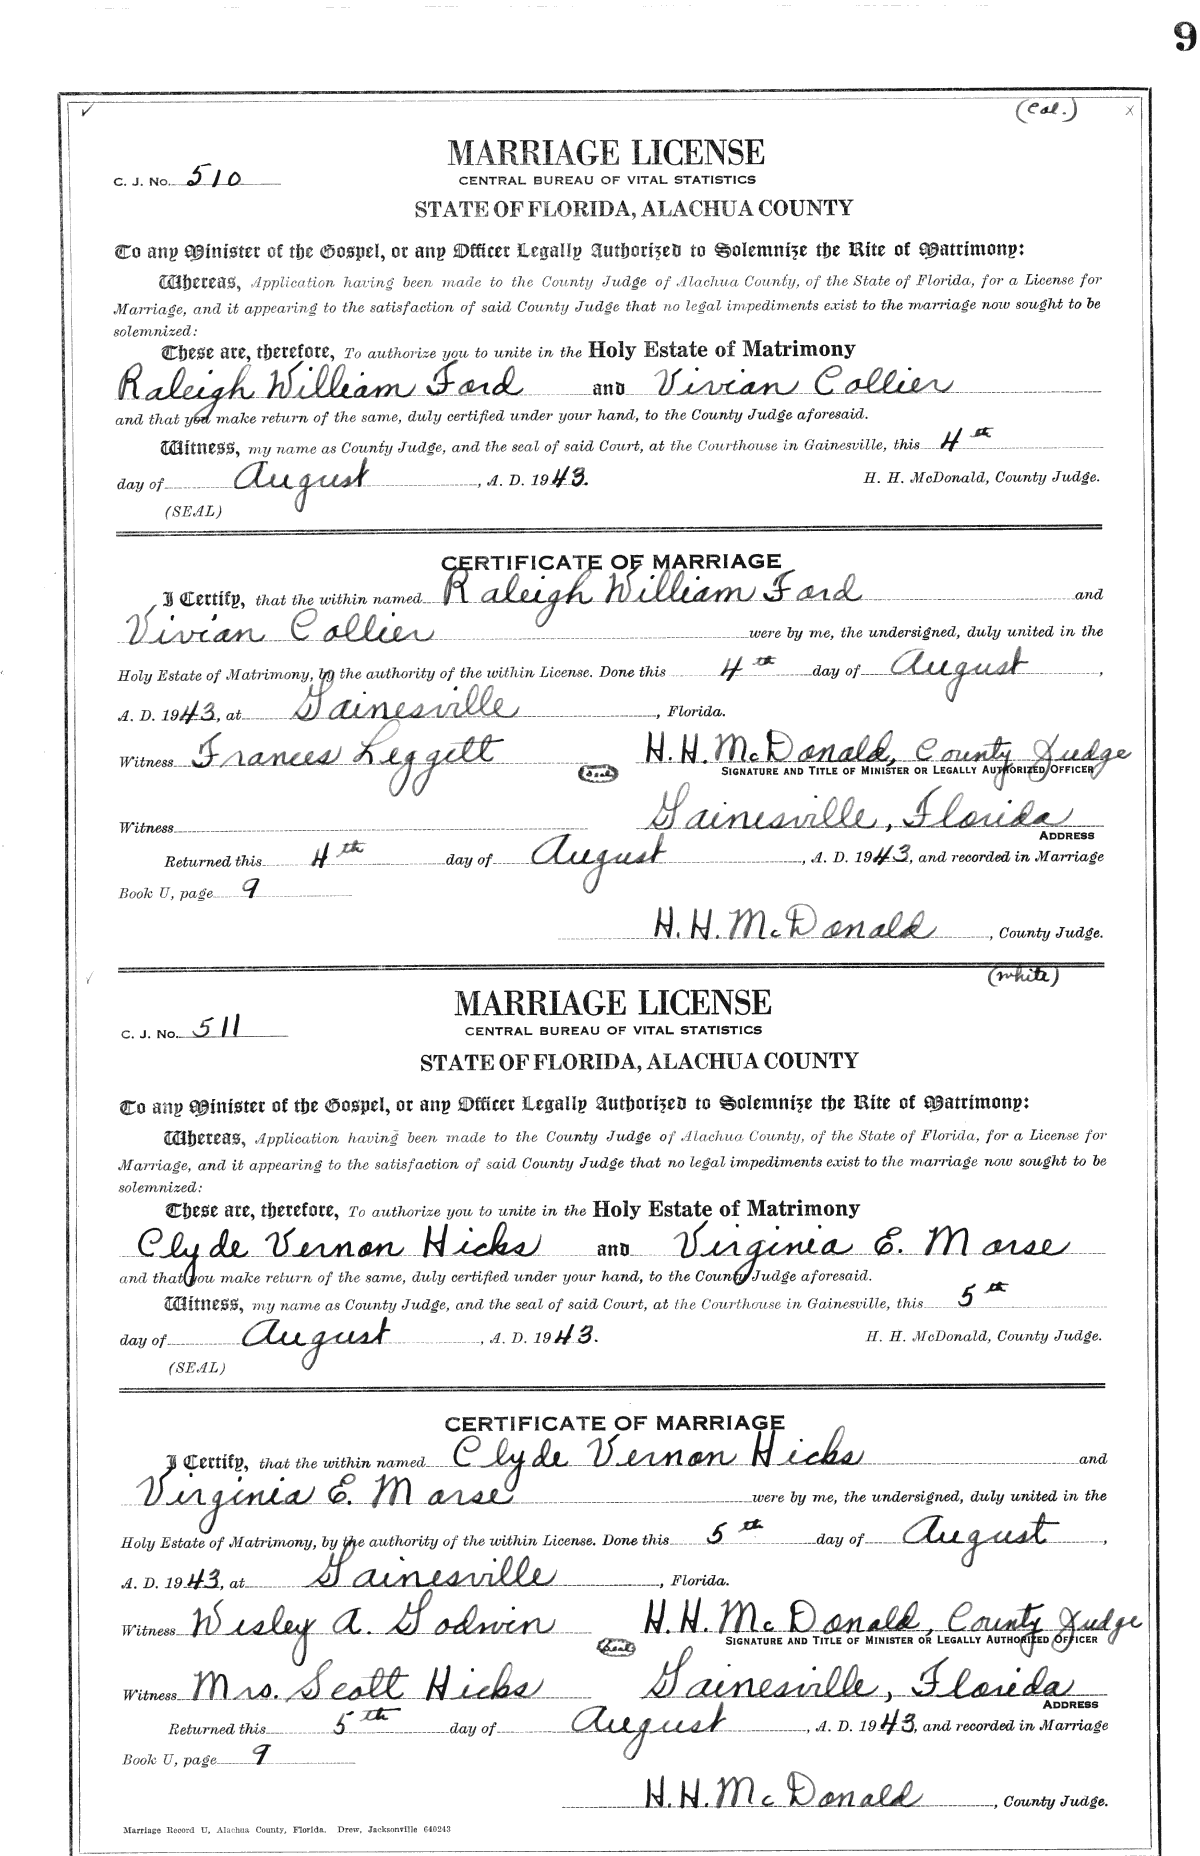 9
(Col.) x
MARRIAGE LICENSE
C. J. No. 510
CENTRAL BUREAU OF VITAL STATISTICS
STATE OF FLORIDA, ALACHUA COUNTY
To any Minister of the Gospel, or any Officer Legally Authorized to Solemnize the Rite of Matrimony:
Whereas, Application having been made to the County Judge of Alachua County, of the State of Florida, for a License for
Marriage, and it appearing to the satisfaction of said County Judge that no legal impediments exist to the marriage now sought to be
solemnized:
These are, therefore, To authorize you to unite in the Holy Estate of Matrimony
Raleigh William Ford and Vivian Collier
and that you make return of the same, duly certified under your hand, to the County Judge aforesaid.
Witness, my name as County Judge, and the seal of said Court, at the Courthouse in Gainesville, this 4th
day of August, A. D. 1943. H. H. McDonald, County Judge.
(SEAL)
CERTIFICATE OF MARRIAGE
I Certify, that the within named Raleigh William Ford and
Vivian Collier were by me, the undersigned, duly united in the
Holy Estate of Matrimony, by the authority of the within License. Done this 4th day of August,
A. D. 1943, at Gainesville, Florida.
Witness Frances Leggett (Seal) H. H. McDonald, County Judge
SIGNATURE AND TITLE OF MINISTER OR LEGALLY AUTHORIZED OFFICER
Witness Gainesville, Florida
ADDRESS
Returned this 4th day of August, A. D. 1943, and recorded in Marriage
Book U, page 9
H. H. McDonald, County Judge.
(white)
MARRIAGE LICENSE
C. J. No. 511
CENTRAL BUREAU OF VITAL STATISTICS
STATE OF FLORIDA, ALACHUA COUNTY
To any Minister of the Gospel, or any Officer Legally Authorized to Solemnize the Rite of Matrimony:
Whereas, Application having been made to the County Judge of Alachua County, of the State of Florida, for a License for
Marriage, and it appearing to the satisfaction of said County Judge that no legal impediments exist to the marriage now sought to be
solemnized:
These are, therefore, To authorize you to unite in the Holy Estate of Matrimony
Clyde Vernon Hicks and Virginia E. Morse
and that you make return of the same, duly certified under your hand, to the County Judge aforesaid.
Witness, my name as County Judge, and the seal of said Court, at the Courthouse in Gainesville, this 5th
day of August, A. D. 1943. H. H. McDonald, County Judge.
(SEAL)
CERTIFICATE OF MARRIAGE
I Certify, that the within named Clyde Vernon Hicks and
Virginia E. Morse were by me, the undersigned, duly united in the
Holy Estate of Matrimony, by the authority of the within License. Done this 5th day of August,
A. D. 1943, at Gainesville, Florida.
Witness Wesley A. Godwin (Seal) H. H. McDonald, County Judge
SIGNATURE AND TITLE OF MINISTER OR LEGALLY AUTHORIZED OFFICER
Witness Mrs. Scott Hicks Gainesville, Florida
ADDRESS
Returned this 5th day of August, A. D. 1943, and recorded in Marriage
Book U, page 9
H. H. McDonald, County Judge.
Marriage Record U, Alachua County, Florida. Drew, Jacksonville 640243